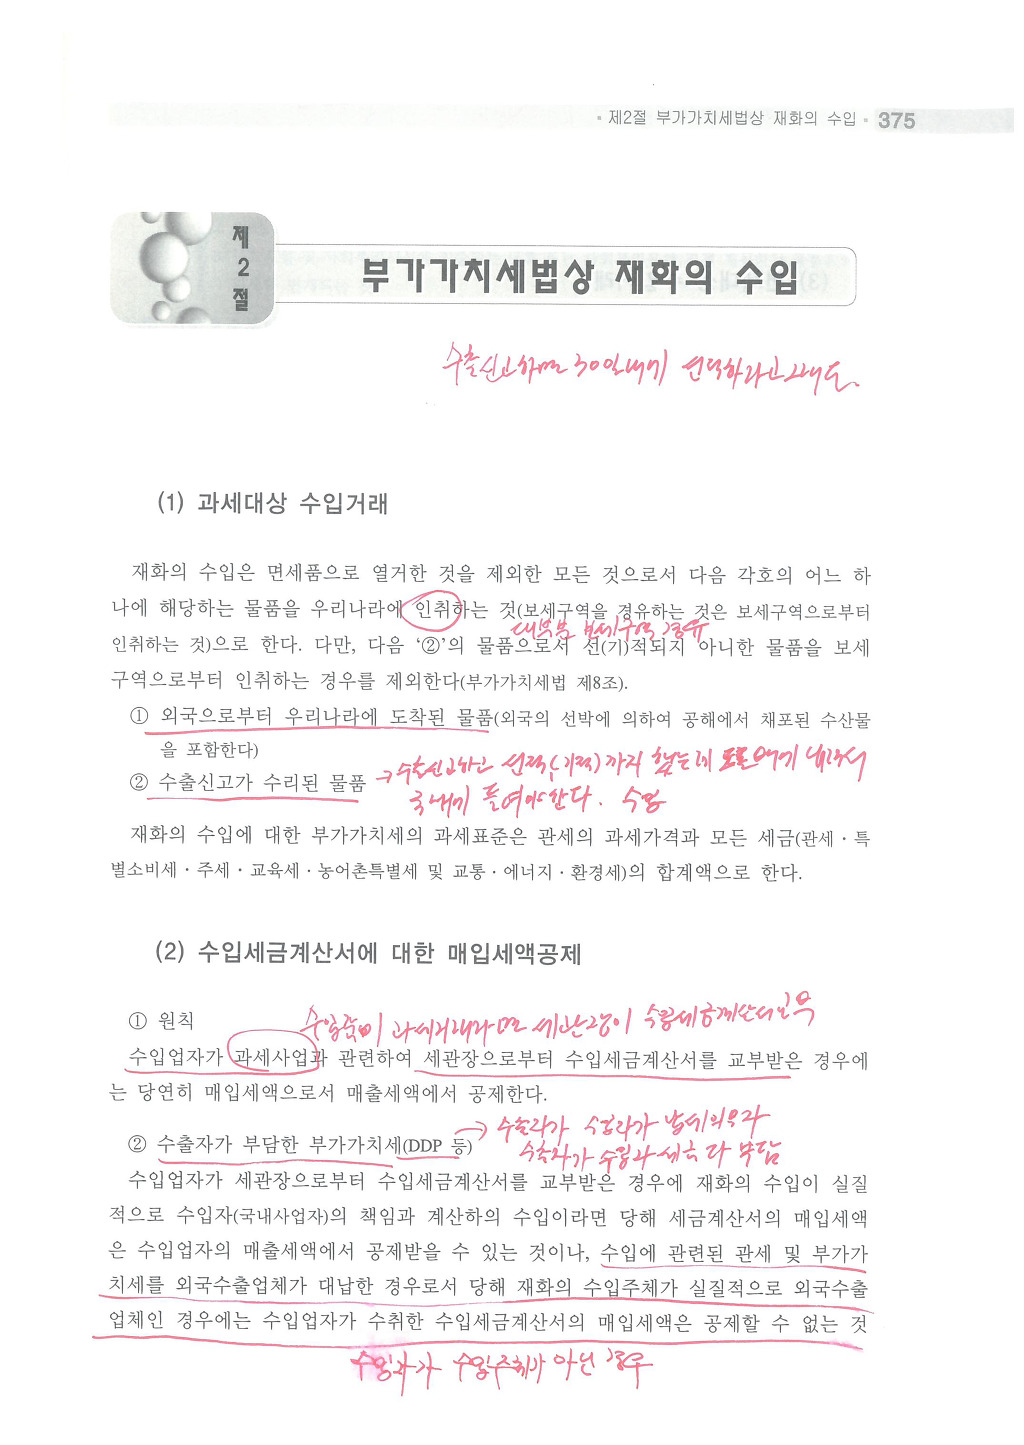 ▪ 제2절 부가가치세법상 재화의 수입 ▪ 375
제
2
절
부가가치세법상 재화의 수입
수출신고하면 30일내에 선적하라고
(1) 과세대상 수입거래
재화의 수입은 면세품으로 열거한 것을 제외한 모든 것으로서 다음 각호의 어느 하
나에 해당하는 물품을 우리나라에 인취하는 것(보세구역을 경유하는 것은 보세구역으로부터
대부분 보세구역 경유
인취하는 것)으로 한다. 다만, 다음 ‘②’의 물품으로서 선(기)적되지 아니한 물품을 보세
구역으로부터 인취하는 경우를 제외한다(부가가치세법 제8조).
① 외국으로부터 우리나라에 도착된 물품(외국의 선박에 의하여 공해에서 채포된 수산물
을 포함한다)
→ 수출신고하고 선적(기적)까지 했는데
② 수출신고가 수리된 물품
국내에 들여야한다. 수입
재화의 수입에 대한 부가가치세의 과세표준은 관세의 과세가격과 모든 세금(관세 · 특
별소비세 · 주세 · 교육세 · 농어촌특별세 및 교통 · 에너지 · 환경세)의 합계액으로 한다.
(2) 수입세금계산서에 대한 매입세액공제
① 원칙
과세거래라면 세관장이 수입세금계산서 교부
수입업자가 과세사업과 관련하여 세관장으로부터 수입세금계산서를 교부받은 경우에
는 당연히 매입세액으로서 매출세액에서 공제한다.
→ 수출자가 수입자가 납세의무자
② 수출자가 부담한 부가가치세(DDP 등)
수출자가 수입자 세금 다 부담
수입업자가 세관장으로부터 수입세금계산서를 교부받은 경우에 재화의 수입이 실질
적으로 수입자(국내사업자)의 책임과 계산하의 수입이라면 당해 세금계산서의 매입세액
은 수입업자의 매출세액에서 공제받을 수 있는 것이나, 수입에 관련된 관세 및 부가가
치세를 외국수출업체가 대납한 경우로서 당해 재화의 수입주체가 실질적으로 외국수출
업체인 경우에는 수입업자가 수취한 수입세금계산서의 매입세액은 공제할 수 없는 것
수입자가 수입주체가 아닌 경우